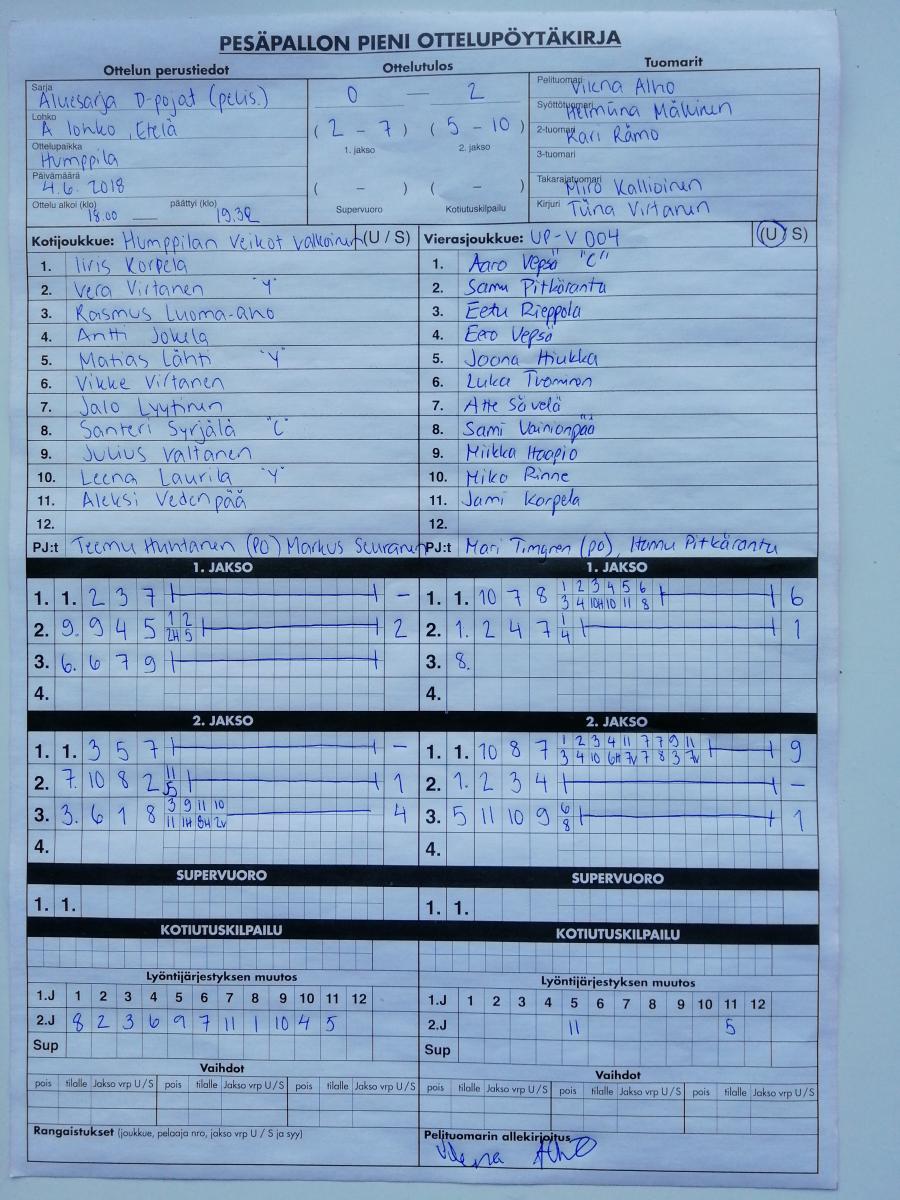 PESÄPALLON PIENI OTTELUPÖYTÄKIRJA
Ottelun perustiedot
Sarja
Aluesarja D-pojat (pelis.)
Lohko
A lohko, Etelä
Ottelupaikka
Humppila
Päivämäärä
4.6. 2018
Ottelu alkoi (klo) päättyi (klo)
18.00 — 19.32
Ottelutulos
0 — 2
(2 - 7) (5 - 10)
1. jakso 2. jakso
( - ) ( - )
Supervuoro Kotiutuskilpailu
Tuomarit
Pelituomari Viena Alho
Syöttötuomari Helmiina Mäkinen
2-tuomari Kari Rämö
3-tuomari
Takarajatuomari Miro Kallioinen
Kirjuri Tiina Virtanen
Kotijoukkue: Humppilan Veikot Valkoinen (U / S)
1. Iiris Korpela
2. Vera Virtanen "Y"
3. Rasmus Luoma-aho
4. Antti Jokela
5. Matias Lähti "Y"
6. Vikke Virtanen
7. Jalo Lyytinen
8. Santeri Syrjälä "C"
9. Julius Valtanen
10. Leena Laurila "Y"
11. Aleksi Vedenpää
12.
PJ:t Teemu Huhtanen (PO) Markus Seuranen
Vierasjoukkue: UP-V D04 (U / S)
1. Aaro Vepsä "C"
2. Samu Pitkäranta
3. Eetu Rieppola
4. Eero Vepsä
5. Joona Hiukka
6. Luka Tuominen
7. Atte Sävelä
8. Sami Vainionpää
9. Miikka Haapio
10. Miko Rinne
11. Jami Korpela
12.
PJ:t Mari Timgren (po), Hannu Pitkäranta
1. JAKSO
1. 1. 2 3 7 –
1 2
2. 9. 9 4 5 2H 5 2
3. 6. 6 7 9
4.
1. JAKSO
1 2 3 4 5 6
1. 1. 10 7 8 3 4 10H 10 11 8 6
1
2. 1. 2 4 7 4 1
3. 8.
4.
2. JAKSO
1. 1. 3 5 7 –
11
2. 7. 10 8 2 5 1
3 9 11 10
3. 3. 6 1 8 11 1H 8H 2v 4
4.
2. JAKSO
1 2 3 4 11 7 7 9 11
1. 1. 10 8 7 3 4 10 6H 7v 7 8 3 7v 9
2. 1. 2 3 4 –
6
3. 5 11 10 9 8 1
4.
SUPERVUORO
1. 1.
SUPERVUORO
1. 1.
KOTIUTUSKILPAILU
KOTIUTUSKILPAILU
Lyöntijärjestyksen muutos
1.J 1 2 3 4 5 6 7 8 9 10 11 12
2.J 8 2 3 6 9 7 11 1 10 4 5
Sup
Lyöntijärjestyksen muutos
1.J 1 2 3 4 5 6 7 8 9 10 11 12
2.J 11 5
Sup
Vaihdot
pois tilalle Jakso vrp U / S pois tilalle Jakso vrp U / S pois tilalle Jakso vrp U / S
Vaihdot
pois tilalle Jakso vrp U / S pois tilalle Jakso vrp U / S pois tilalle Jakso vrp U / S
Rangaistukset (joukkue, pelaaja nro, jakso vrp U / S ja syy)
Pelituomarin allekirjoitus
Viena Alho